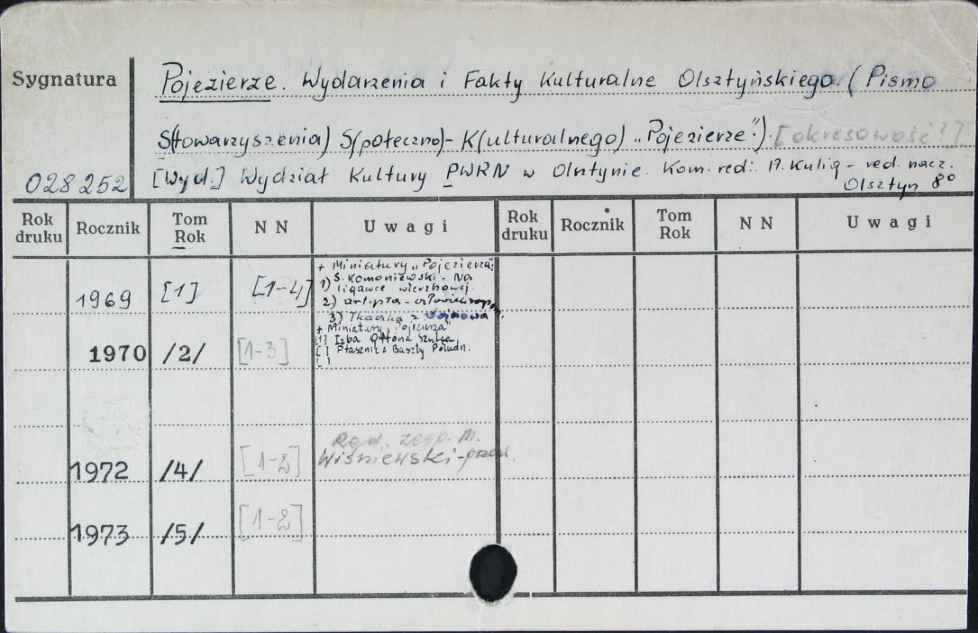 Sygnatura
Pojezierze. Wydarzenia i Fakty Kulturalne Olsztyńskiego. (Pismo
S(towarzyszenia) S(połeczno)-K(ulturalnego) „Pojezierze”). [okresowość?]
028252 [Wyd.] Wydział Kultury PWRN w Olsztynie. Kom. red.: A. Kulig - red. nacz.
Olsztyn 8°
Rok druku Rocznik Tom Rok NN Uwagi Rok druku Rocznik Tom Rok NN Uwagi
+ Miniatury „Pojezierza:
1969 [1] [1-4] 1) S. Komoniewski - Na
ligawce wierzbowej.
2)
3) Tkaczka z Wojnowa
+ Miniatury Pojezierza
1970 /2/ [1-3] [] Izba Ottona
[] Ptasznik z Baszty Połudn.
[ ]
Red. zesp. M.
1972 /4/ [1-2] Wiśniewski - przew.
1973 /5/ [1-2]